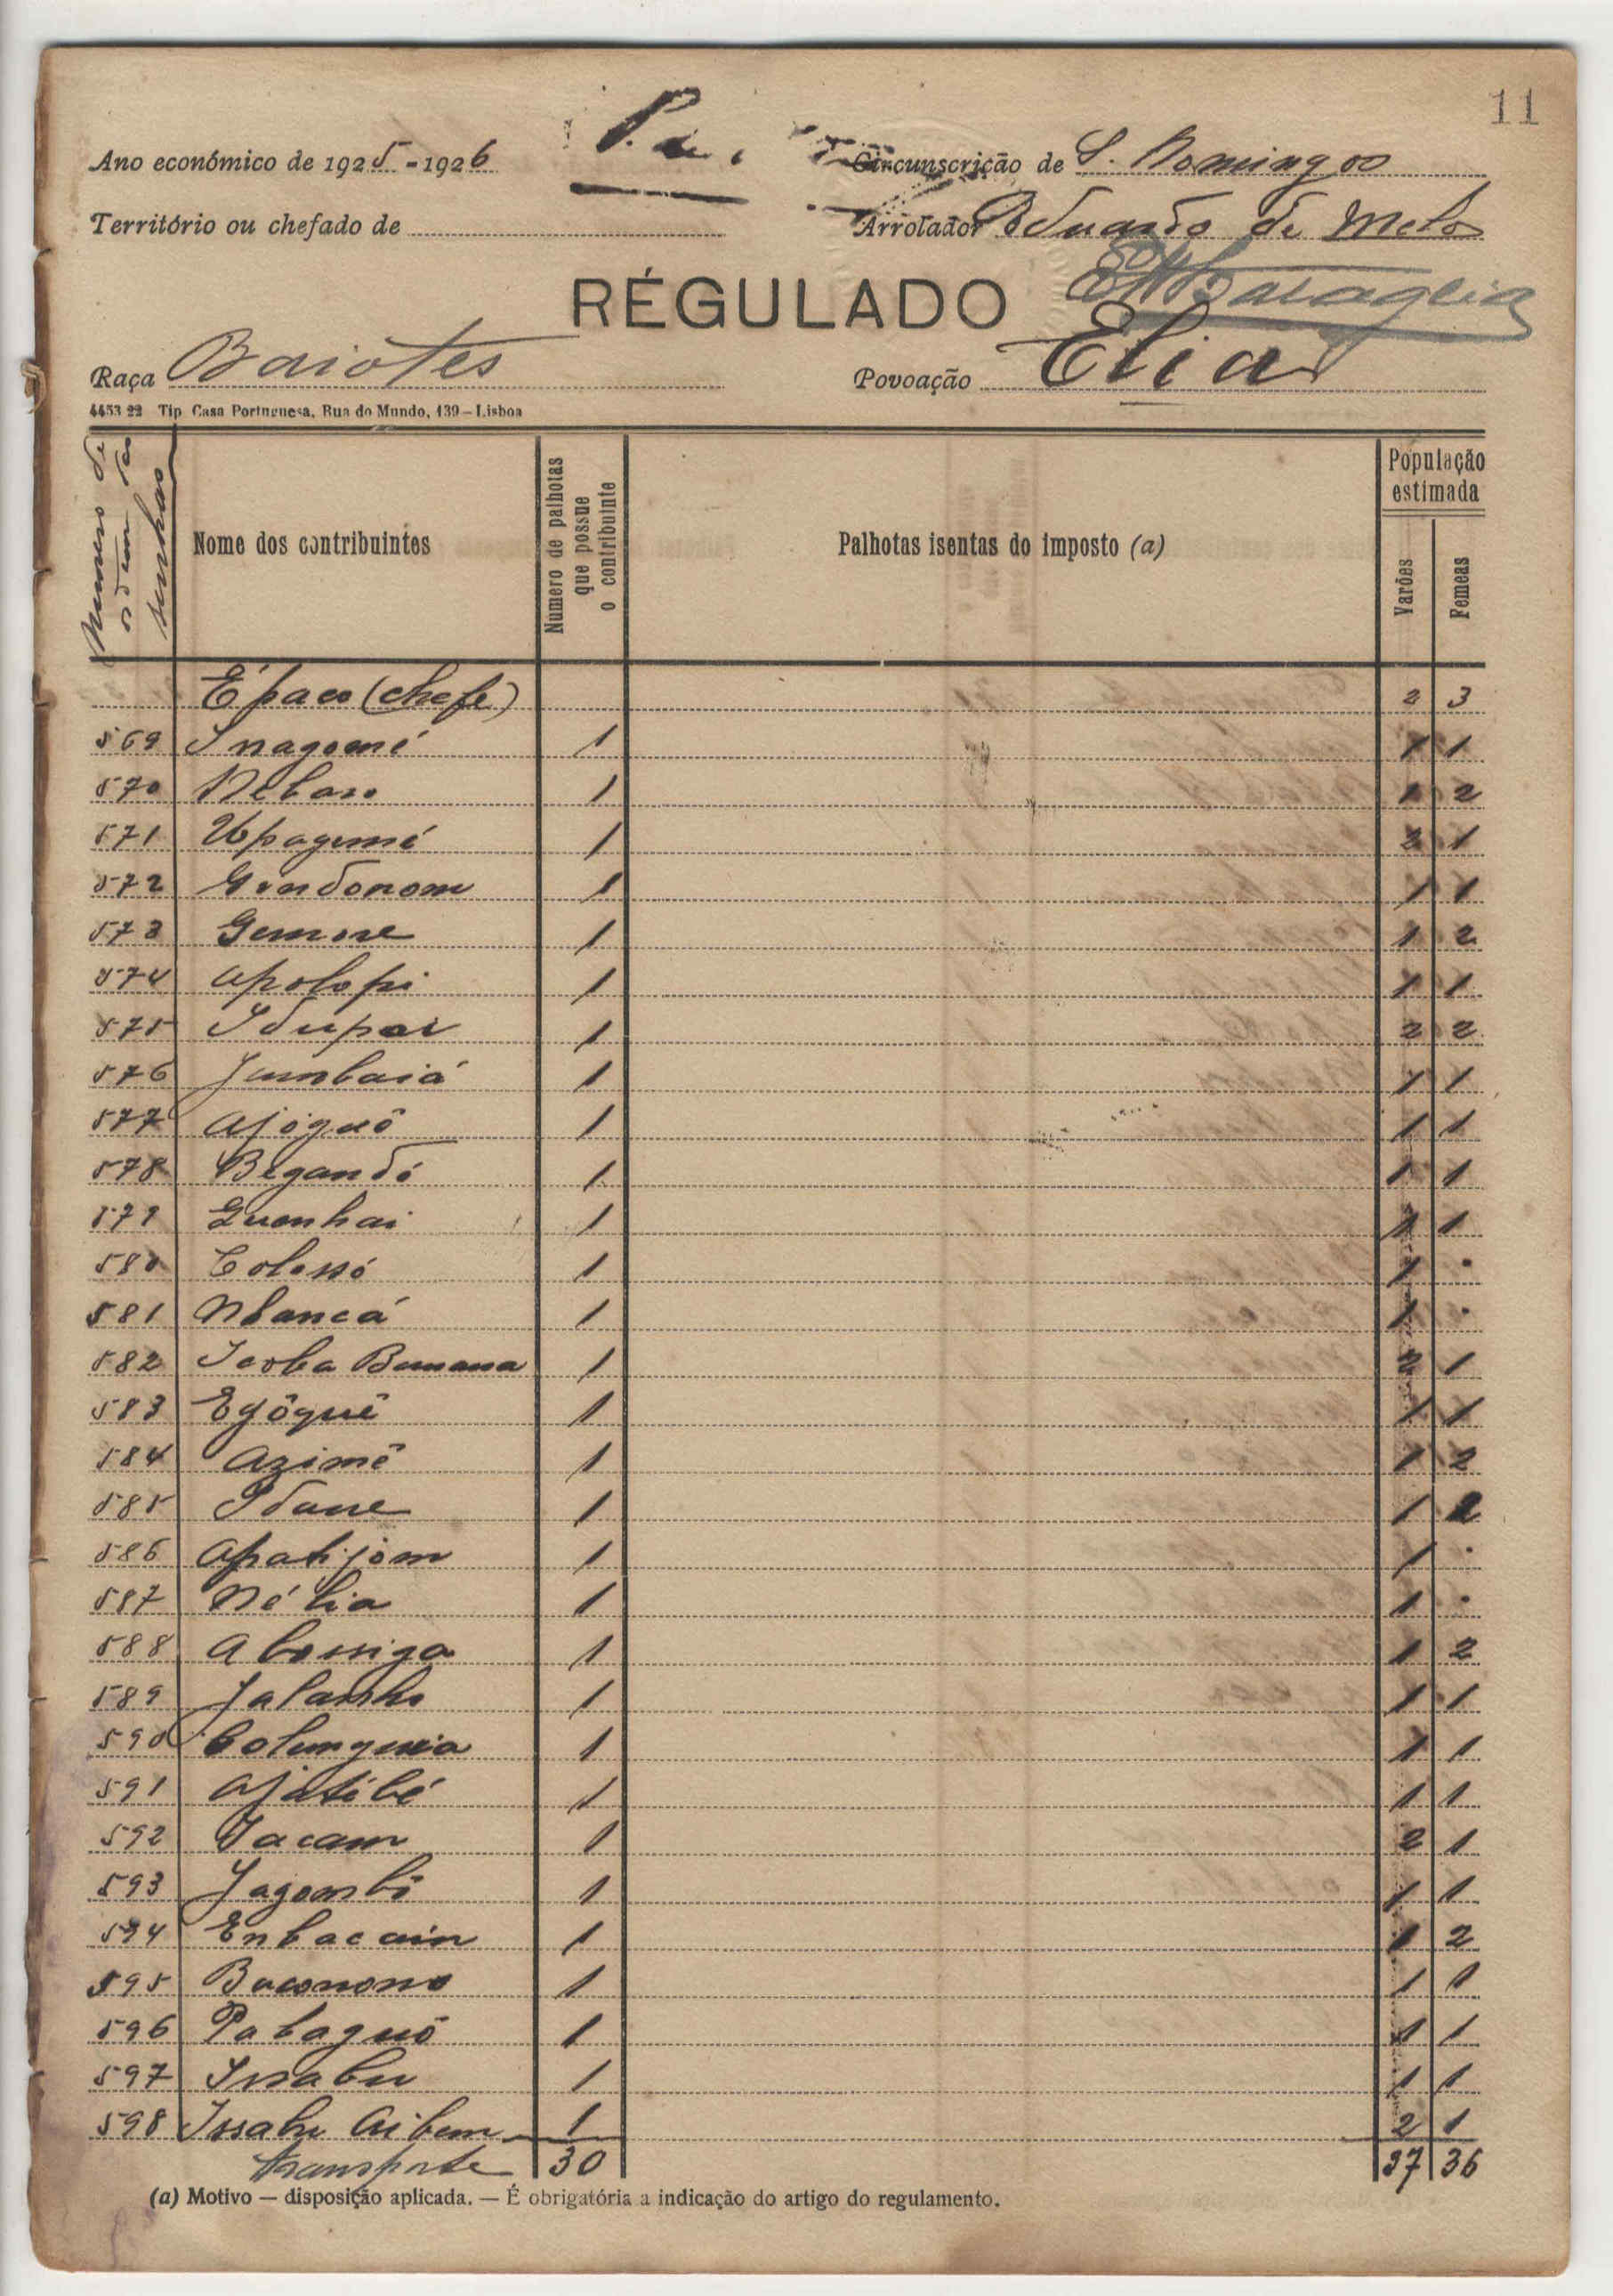 11
Ano económico de 1925-1926 Circunscrição de S. Domingos
Território ou chefado de Arrolador Eduardo de Melo
RÉGULADO
Raça Baiotes Povoação Elia
4453 22 Tip Casa Portuguesa, Rua do Mundo, 139—Lisboa
Numero de ordem das senhas
Nome dos contribuintes
Numero de palhotas que possue o contribuinte
Palhotas isentas do imposto (a)
População estimada
Varões
Femeas
(chefe) 2 3
569 1 1 1
570 1 1 2
571 Upagemé 1 2 1
572 1 1 1
573 1 1 2
574 Apolopi 1 1 1
575 Idupar 1 2 2
576 Jumbaiá 1 1 1
577 Ajoguô 1 1 1
578 Begandó 1 1 1
579 1 1 1
580 Colossó 1 1 .
581 Nbancá 1 1 .
582 1 2 1
583 1 1 1
584 Azimê 1 1 2
585 Idane 1 1 2
586 Apatijom 1 1 .
587 Nélia 1 1 .
588 1 1 2
589 1 1 1
590 1 1 1
591 Ajatibé 1 1 1
592 Jacam 1 2 1
593 Jagombi 1 1 1
594 Enbacain 1 1 2
595 1 1 1
596 Pabaguô 1 1 1
597 Issabu 1 1 1
598 Issabu 1 2 1
Transporte 30 37 36
(a) Motivo — disposição aplicada. — É obrigatória a indicação do artigo do regulamento.